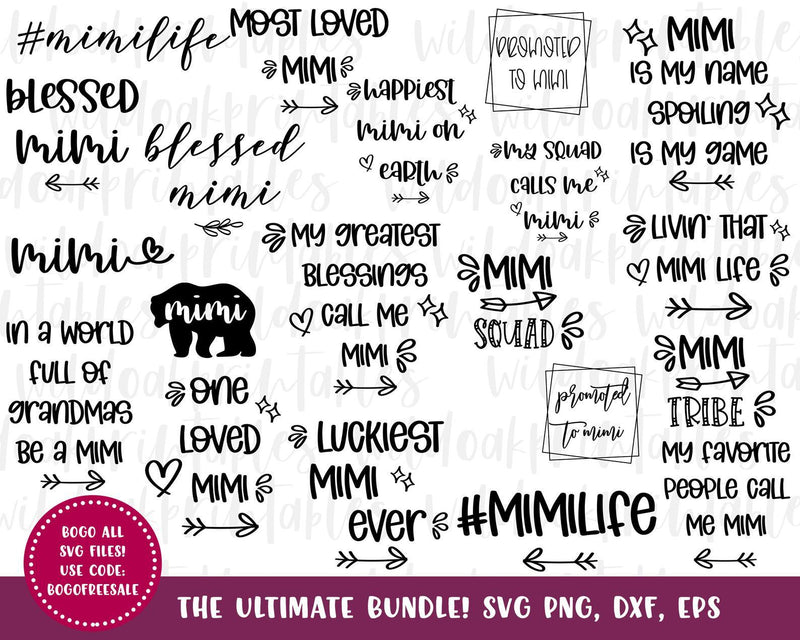 #mimilife
MOST LOVED
MIMI
blessed
mimi
blessed
mimi
HAPPIEST
mimi on
earth
PROMOTED
TO MIMI
MIMI
IS MY NAME
SPOILING
IS MY GAME
my SQUAD
CALLS ME
mimi
mimi
mimi
MY GREATEST
BLESSINGS
CALL ME
MIMI
MIMI
SQUAD
LIVIN' THAT
MIMI LIFE
IN A WORLD
FULL OF
GRANDMAS
BE A MIMI
ONE
LOVED
MIMI
LUCKIEST
MIMI
EVER
promoted
to mimi
MIMI
TRIBE
MY FAVORITE
PEOPLE CALL
ME MIMI
#MIMILIFE
BOGO ALL
SVG FILES!
USE CODE:
BOGOFREESALE
THE ULTIMATE BUNDLE! SVG PNG, DXF, EPS
wildoakprintables